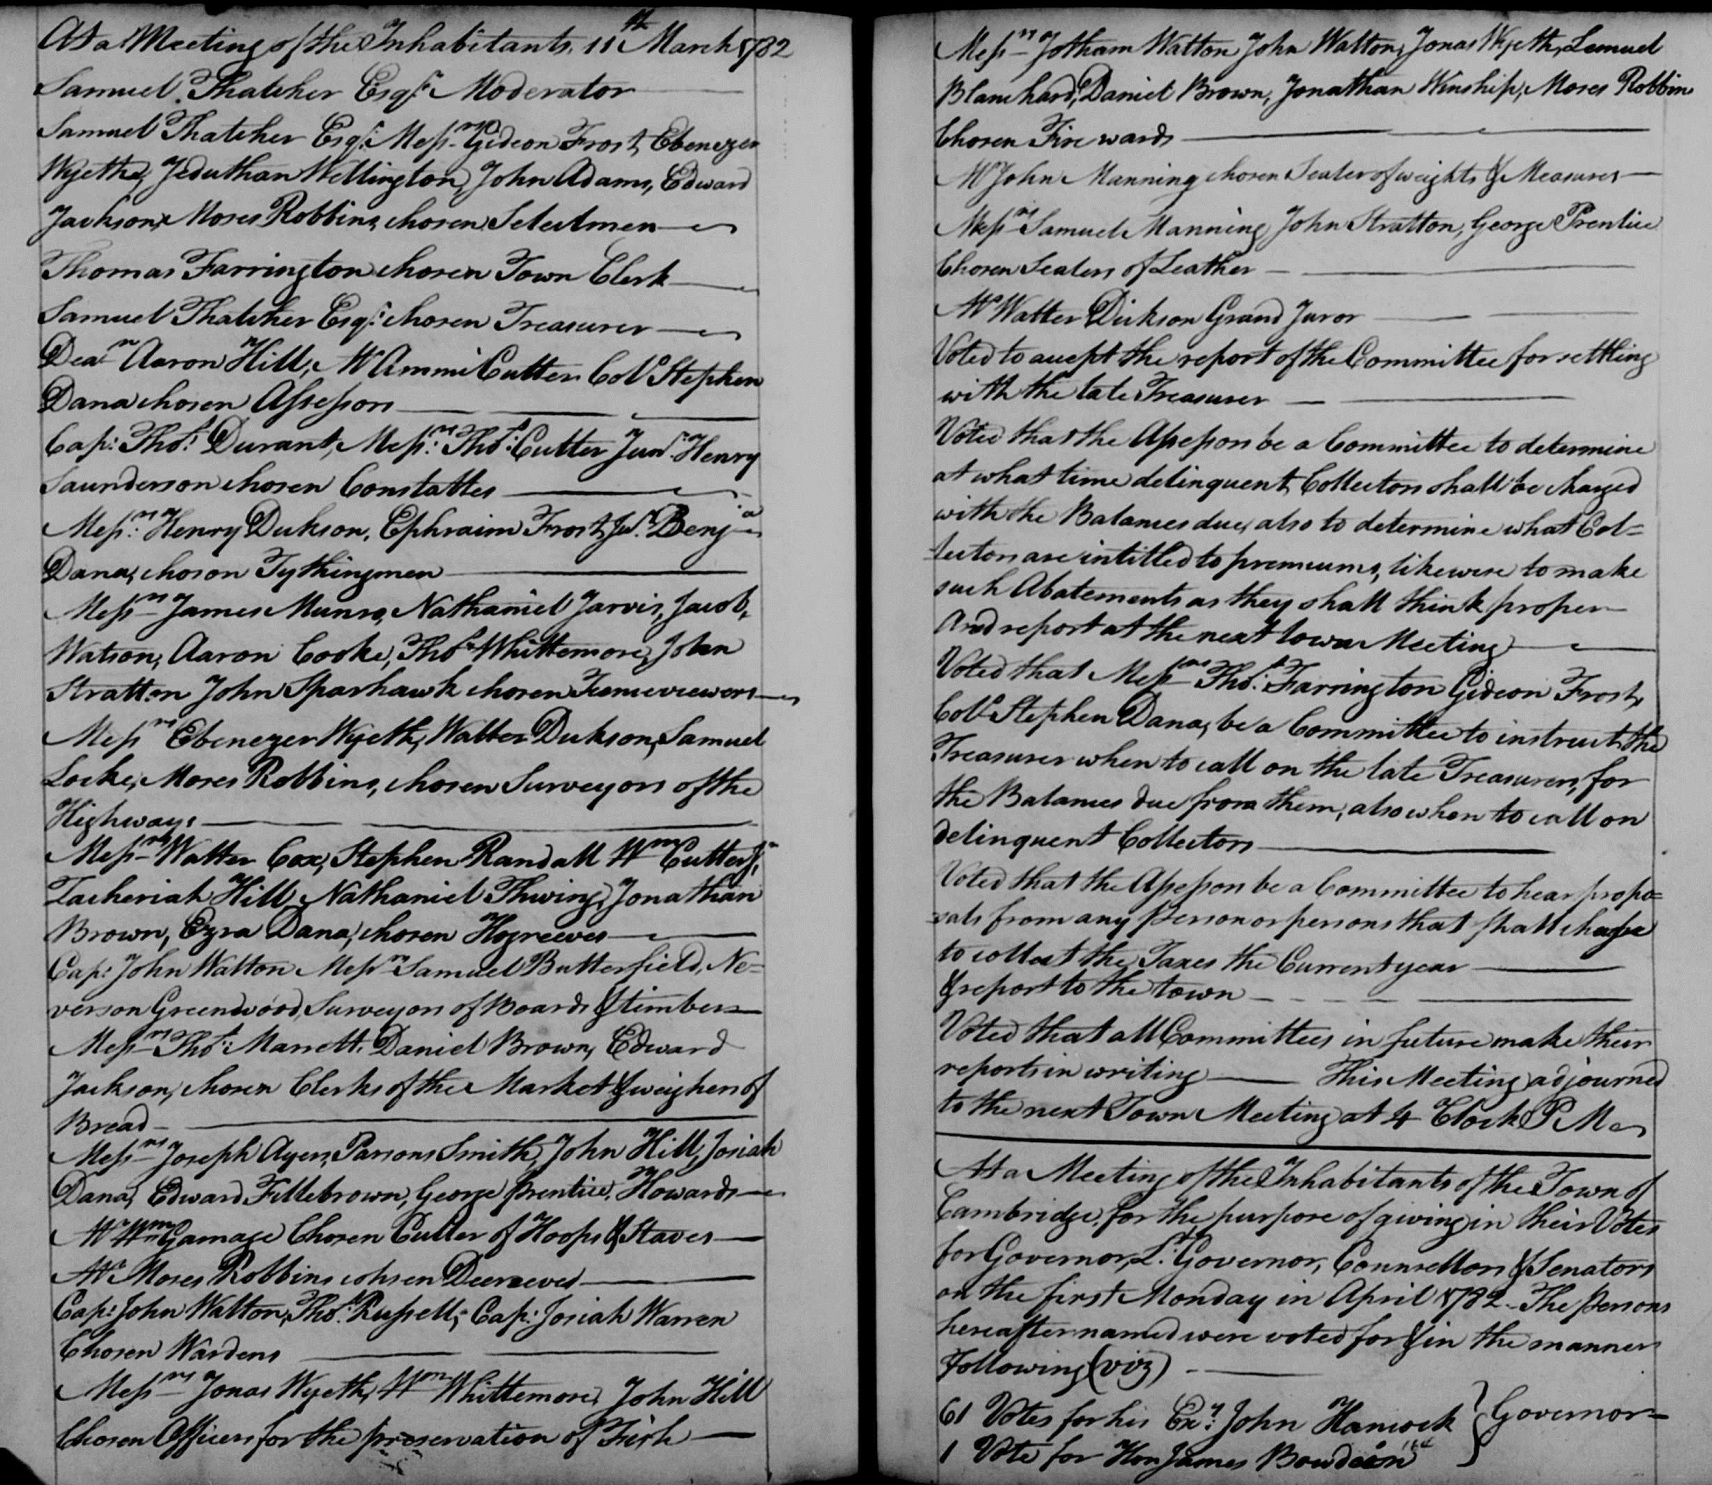 At a Meeting of the Inhabitants, 11th March 1782
Samuel Thatcher Esqr. Moderator
Samuel Thatcher Esqr. Messrs Gideon Frost, Ebenezer
Wyethe, Jeduthan Wellington, John Adams, Edward
Jackson, Moses Robbins, chosen Selectmen
Thomas Farrington chosen Town Clerk
Samuel Thatcher Esqr. chosen Treasurer
Deacn Aaron Hill, Mr Ammi Cutter Colo Stephen
Dana chosen Assessors
Cap: Thos. Durant, Messrs. Thos: Cutter Junr Henry
Saunderson chosen Constables
Messrs. Henry Dickson, Ephraim Frost Jur. Benja
Dana, choson Tythingmen
Messrs James Munro, Nathaniel Jarvis, Jacob,
Watson, Aaron Cooke, Thos Whittemore, John
Stratton John Sparhawk chosen Fenceviewers
Messrs Ebenezer Wyeth, Walter Dickson, Samuel
Locke, Moses Robbins, chosen Surveyors of the
Highways
Messrs Walter Cox, Stephen Randall Wm Cutter Jr
Zacheriah Hill, Nathaniel Thwing, Jonathan
Brown, Ezra Dana, chosen Hogreeves
Cap: John Walton Messrs Samuel Butterfield, Ne=
verson Greenwood, Surveyors of Boards & timber
Messrs Thos: Marrett, Daniel Brown, Edward
Jackson, chosen Clerks of the Market & weighers of
Bread
Messrs Joseph Ayers, Parsons Smith, John Hill, Josiah
Dana, Edward Fillebrown, George prentice, Howards
Mr Wm Gamage Chosen Culler of Hoops & Staves
Mr Moses Robbins cohsen Deereeves
Cap: John Walton, Thos. Russell, Cap: Josiah Warren
Chosen Wardens
Messrs Jonas Wyeth, Wm Whittemore, John Hill
Chosen Officers for the preservation of Fish
Messrs Jotham Walton John Walton, Jonas Wyeth, Lemuel
Blanchard, Daniel Brown, Jonathan Winship, Moses Robbins
Chosen Fire wards
Mr John Manning chosen Sealer of weights & Measures
Messrs Samuel Manning John Stratton, George Prentice
Chosen Sealers of Leather
Mr Walter Dickson Grand Juror
Voted to accept the report of the Committee for settling
with the late Treasurer
Voted that the Assessors be a Committee to determine
at what time delinquent Collectors shall be charged
with the Balances due, also to determine what Col=
lectors are intitled to premiums, likewise to make
such Abatements as they shall think proper
And report at the next town Meeting
Voted that Messrs Thos. Farrington Gideon Frost,
Colo Stephen Dana, be a Committee to instruct the
Treasurer when to call on the late Treasurers, for
the Balances due from them, also when to call on
delinquent Collectors
Voted that the Assessors be a Committee to hear propo=
sals from any person or persons that shall
to collect the Taxes the Current year
& report to the town
Voted that all Committees in future make their
reports in writing This Meeting adjourned
to the next Town Meeting at 4 Clock P M
At a Meeting of the Inhabitants of the Town of
Cambridge, for the purpose of giving in their Votes
for Governor, Lt. Governor, Counsellors & Senators
on the first Monday in April 1782 The persons
hereafter named were voted for & in the manner
Following (viz)
61 Votes for his Exy: John Hancock } Governor
1 Vote for Hon James Bowdoin